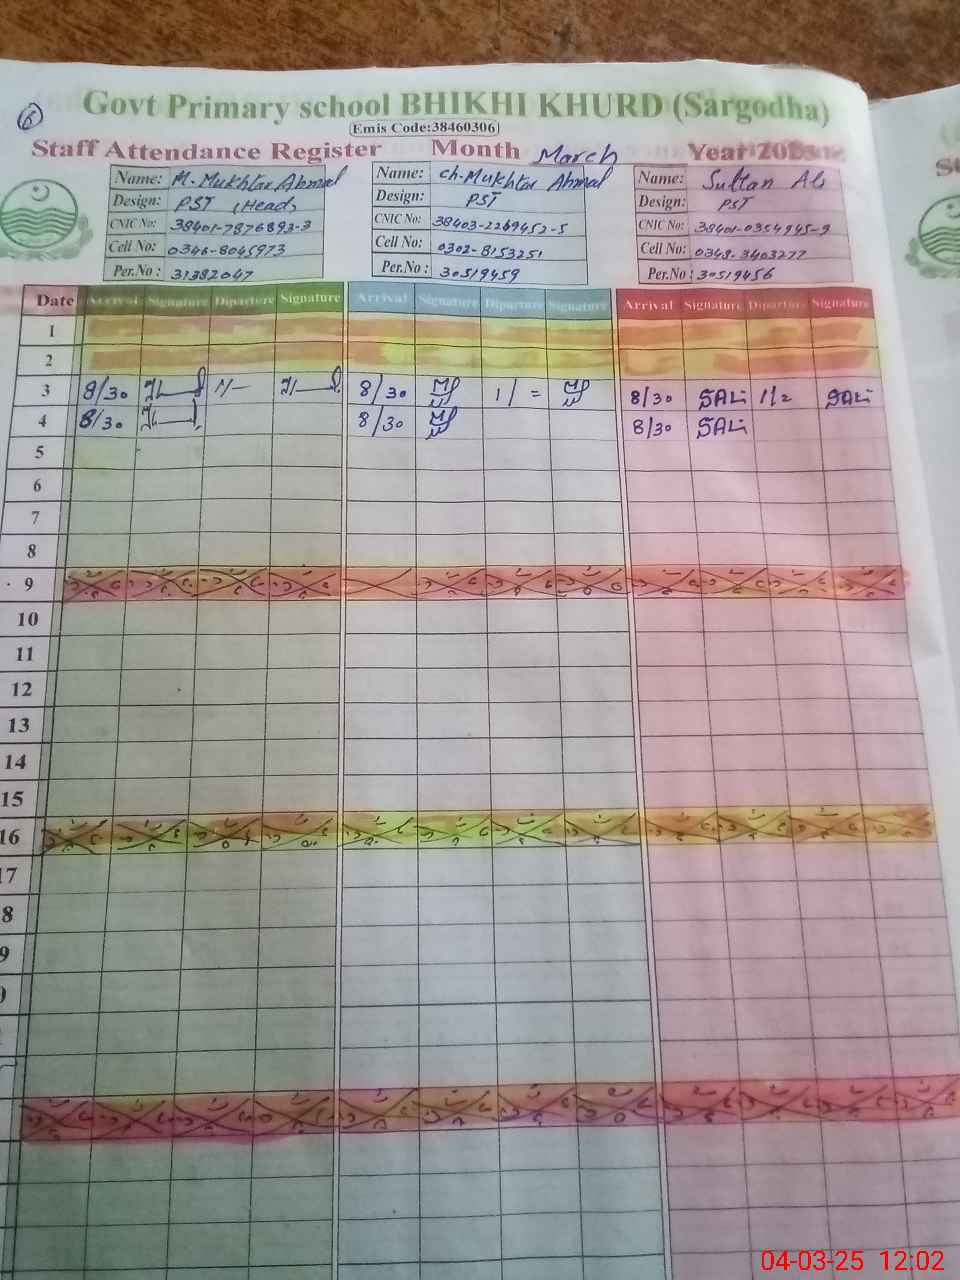 6
Govt Primary school BHIKHI KHURD (Sargodha)
Emis Code:38460306
Staff Attendance Register Month March Year
Name: M. Mukhtar Ahmad Name: Ch. Mukhtar Ahmad Name: Sultan Ali
Design: PST (Head) Design: PST Design: PST
CNIC No: 38401-7876893-3 CNIC No: 38403-2269452-5 CNIC No: 38401-0354945-9
Cell No: 0346-8045973 Cell No: 0302-8153251 Cell No: 0348-3403277
Per.No: 31382047 Per.No: 30519459 Per.No: 30519456
Date Arrival Signature Diparture Signature Arrival Signature Diparture Signature Arrival Signature Diparture Signature
1
2
3 8/30 1/- 8/30 1/= 8/30 SALi 1/= SALi
4 8/30 8/30 8/30 SALi
5
6
7
8
9
10
11
12
13
14
15
16
17
8
9
0
04-03-25 12:02